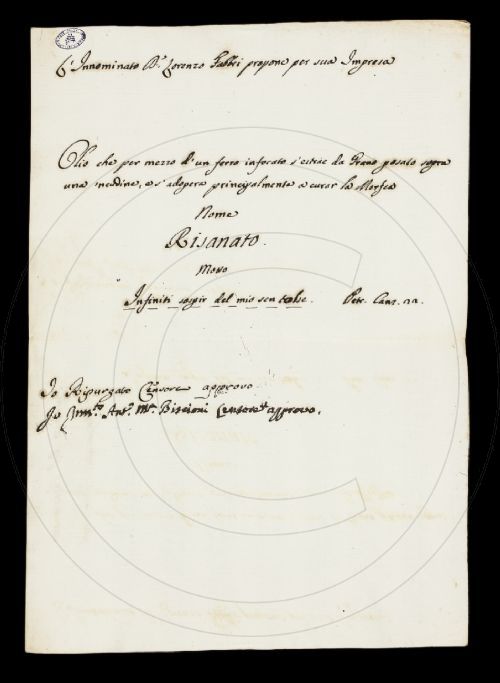 L'Innominato B.r Lorenzo Fabbri propone per sua Impresa
Olio che per mezzo d'un ferro infocato s'estrae da Grano posato sopra
una incudine, e s'adopera principalmente a curar la Morfea
Nome
Risanato.
Motto
Infiniti sospir del mio sen tolse. Petr. Canz.
Io Ripurgato Censore approvo
Io Ant.o M.a Biscioni Censore approvo.